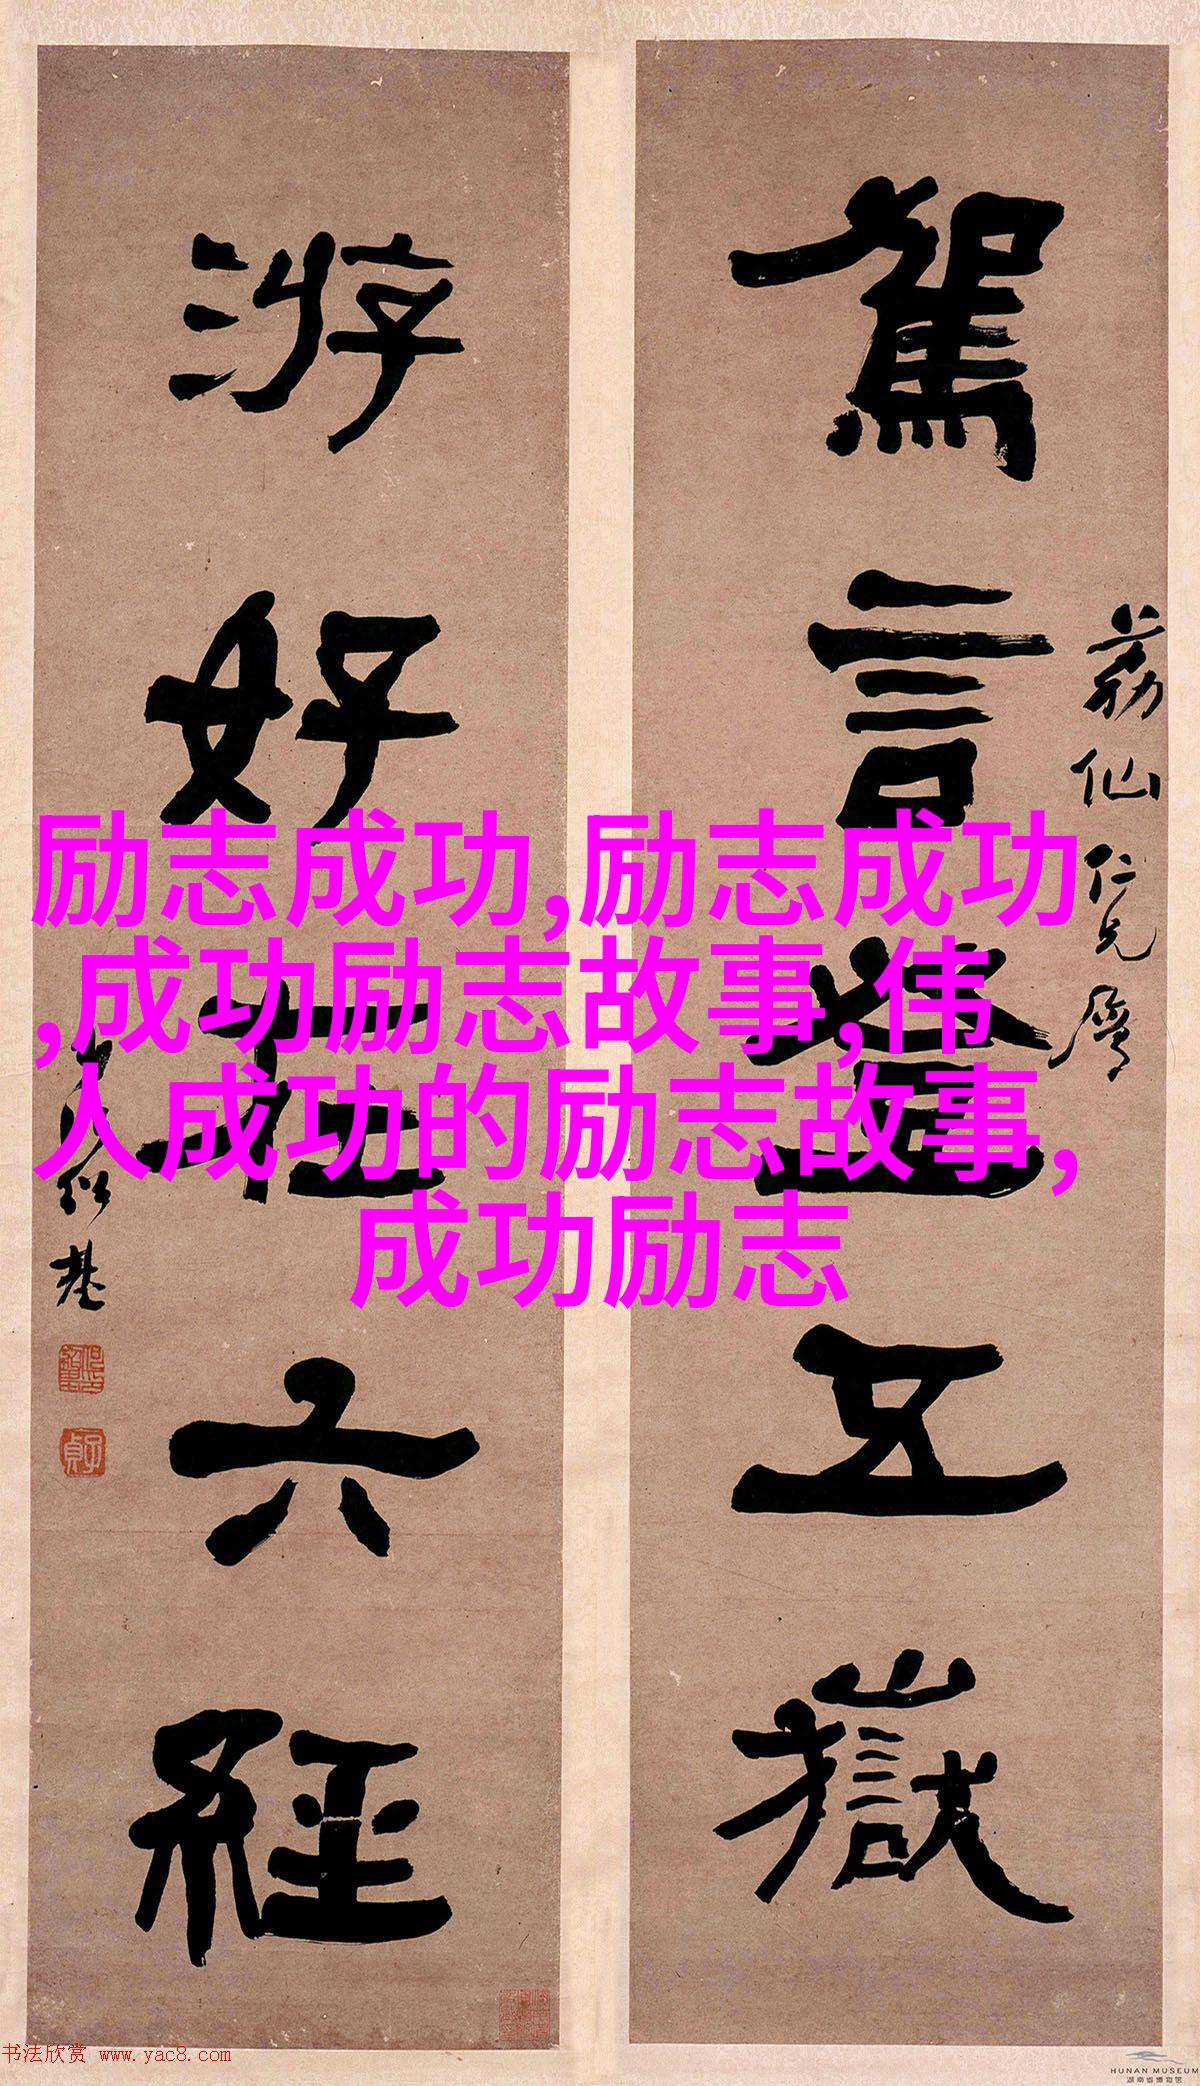 駕言登五嶽
荔仙仁兄屬
游好在六經
何紹基
子貞
励志成功,励志成功
,成功励志故事,伟
人成功的励志故事,
成功励志
书法欣赏 www.yac8.com
HUNAN MUSEUM
湖南省博物馆